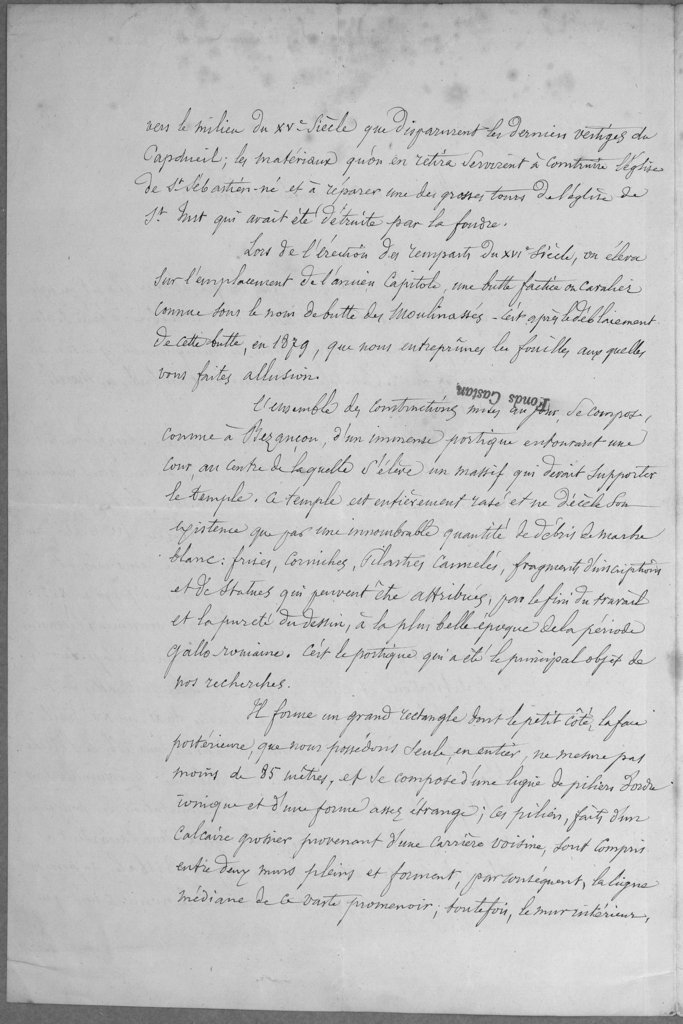 vers le milieu du XVe Siècle que disparurent les derniers vestiges du
Capdueil; les matériaux qu'on en retira servirent à construire l'église
de St Sébastien-né et à réparer une des grosses tours de l'église de
St Just qui avait été détruite par la foudre.
Lors de l'érection des remparts du XVIe Siècle, on eleva
sur l'emplacement de l'ancien Capitole, une butte factice ou cavalier
connue sous le nom de butte des Moulinassés - C'est après le déblaiement
de cette butte, en 1879, que nous entreprîmes les fouilles auxquelles
vous faites allusion.
Fonds Castan
L'ensemble des constructions mises au jour, se compose,
comme à Bezançon, d'un immense portique entourant une
cour, au centre de laquelle s'élève un massif qui devait supporter
le temple. Ce temple est entièrement rasé et ne décèle son
existence que par une innombrable quantité de débris de marbre
blanc: frises, corniches, Pilastres cannelés, fragments d'inscriptions
et de statues qui peuvent être attribués, par le fini du travail
et la pureté du dessin, à la plus belle époque de la période
gallo-romaine. C'est le portique qui a été le principal objet de
nos recherches.
Il forme un grand rectangle dont le petit côté, la face
postérieure, que nous possédons seule, en entier, ne mesure pas
moins de 85 mètres, et se compose d'une ligne de piliers d'ordre
ionique et d'une forme assez étrange; ces piliers, faits d'un
calcaire grossier provenant d'une carrière voisine, sont compris
entre deux murs pleins et forment, par conséquent, la ligne
médiane de ce vaste promenoir; toutefois, le mur intérieur,